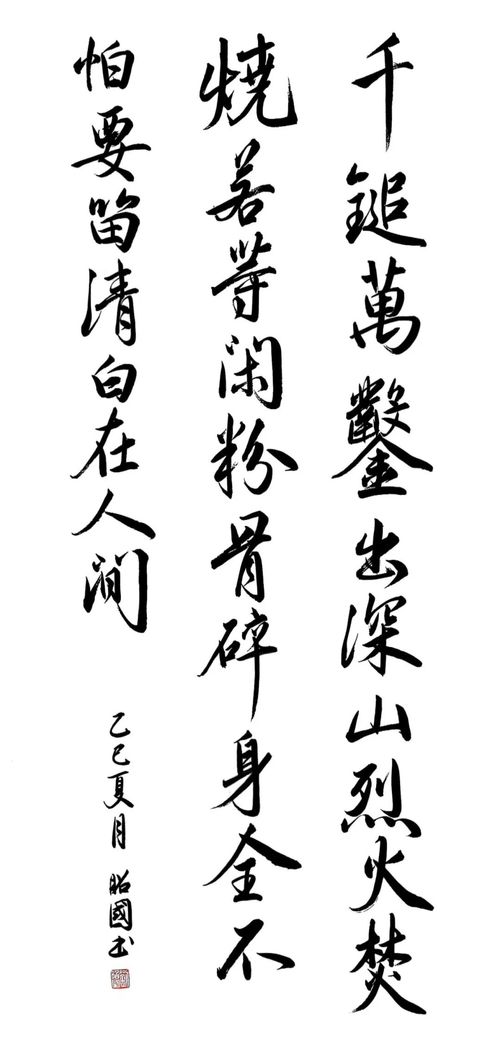 千鎚萬鑿出深山烈火焚
燒若等閑粉骨碎身全不
怕要留清白在人間
乙巳夏月 昭國书